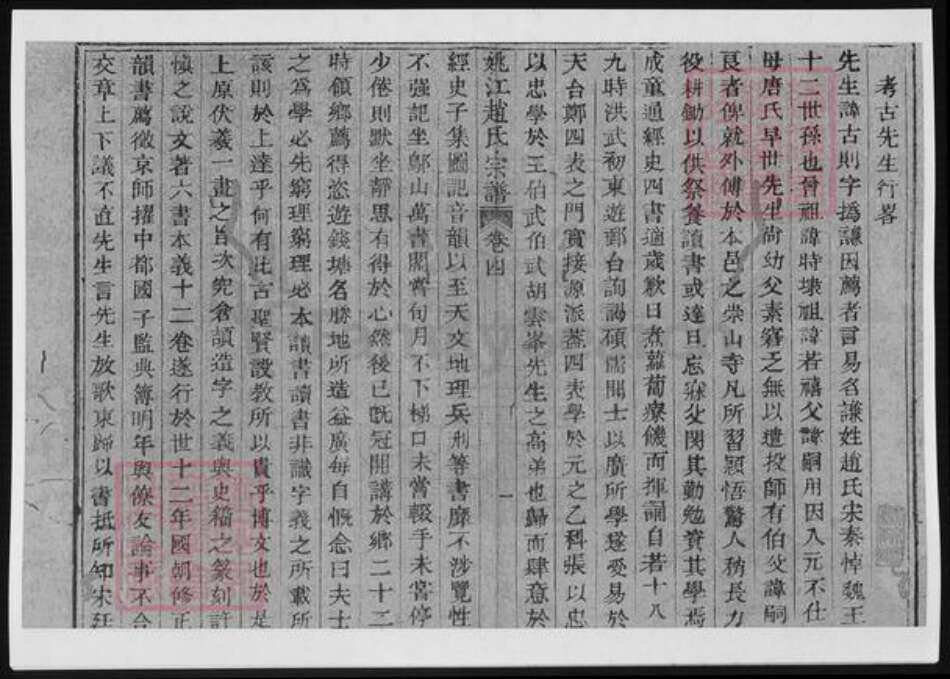 考古先生行畧
先生諱古則字撝謙因薦者言易名謙姓趙氏宋秦悼魏王
十二世孫也曾祖諱時埭祖諱若禧父諱嗣用因入元不仕
母唐氏早世先生尚幼父素窶乏無以遣投師有伯父諱嗣
良者俾就外傅於本邑之崇山寺凡所習穎悟驚人稍長力
役耕鋤以供祭養讀書或達旦忘寐父閔其勤勉資其學焉
成童通經史四書適歲歉日煮蘿蔔療饑而揮誦自若十八
九時洪武初東遊鄞台詢謁碩儒聞士以廣所學遂受易於
天台鄭四表之門實接源派蓋四表學於元之乙科張以忠
以忠學於王伯武伯武胡雲峯先生之高弟也歸而肆意於
姚江趙氏宗譜 卷四 一
經史子集圖記音韻以至天文地理兵刑等書靡不涉覽性
不强記坐鄔山萬書閣霄旬月不下梯口未嘗輟手未嘗停
少倦則默坐靜思有得於心然後已既冠開講於鄉二十二
時領鄉薦得恣遊錢塘名勝地所造益廣每自慨念曰夫士
之爲學必先窮理窮理必本讀書讀書非識字義之所載所
該則於上達乎何有此古聖賢設教所以貴乎博文也於是
上原伏羲一畫之旨次究倉頡造字之義與史籀之篆刻許
愼之說文著六書本義十二卷遂行於世十二年國朝修正
韻書薦徵京師擢中都國子監典簿明年與僚友論事不合
交章上下議不直先生言先生放歌東歸以書抵所知宋廷